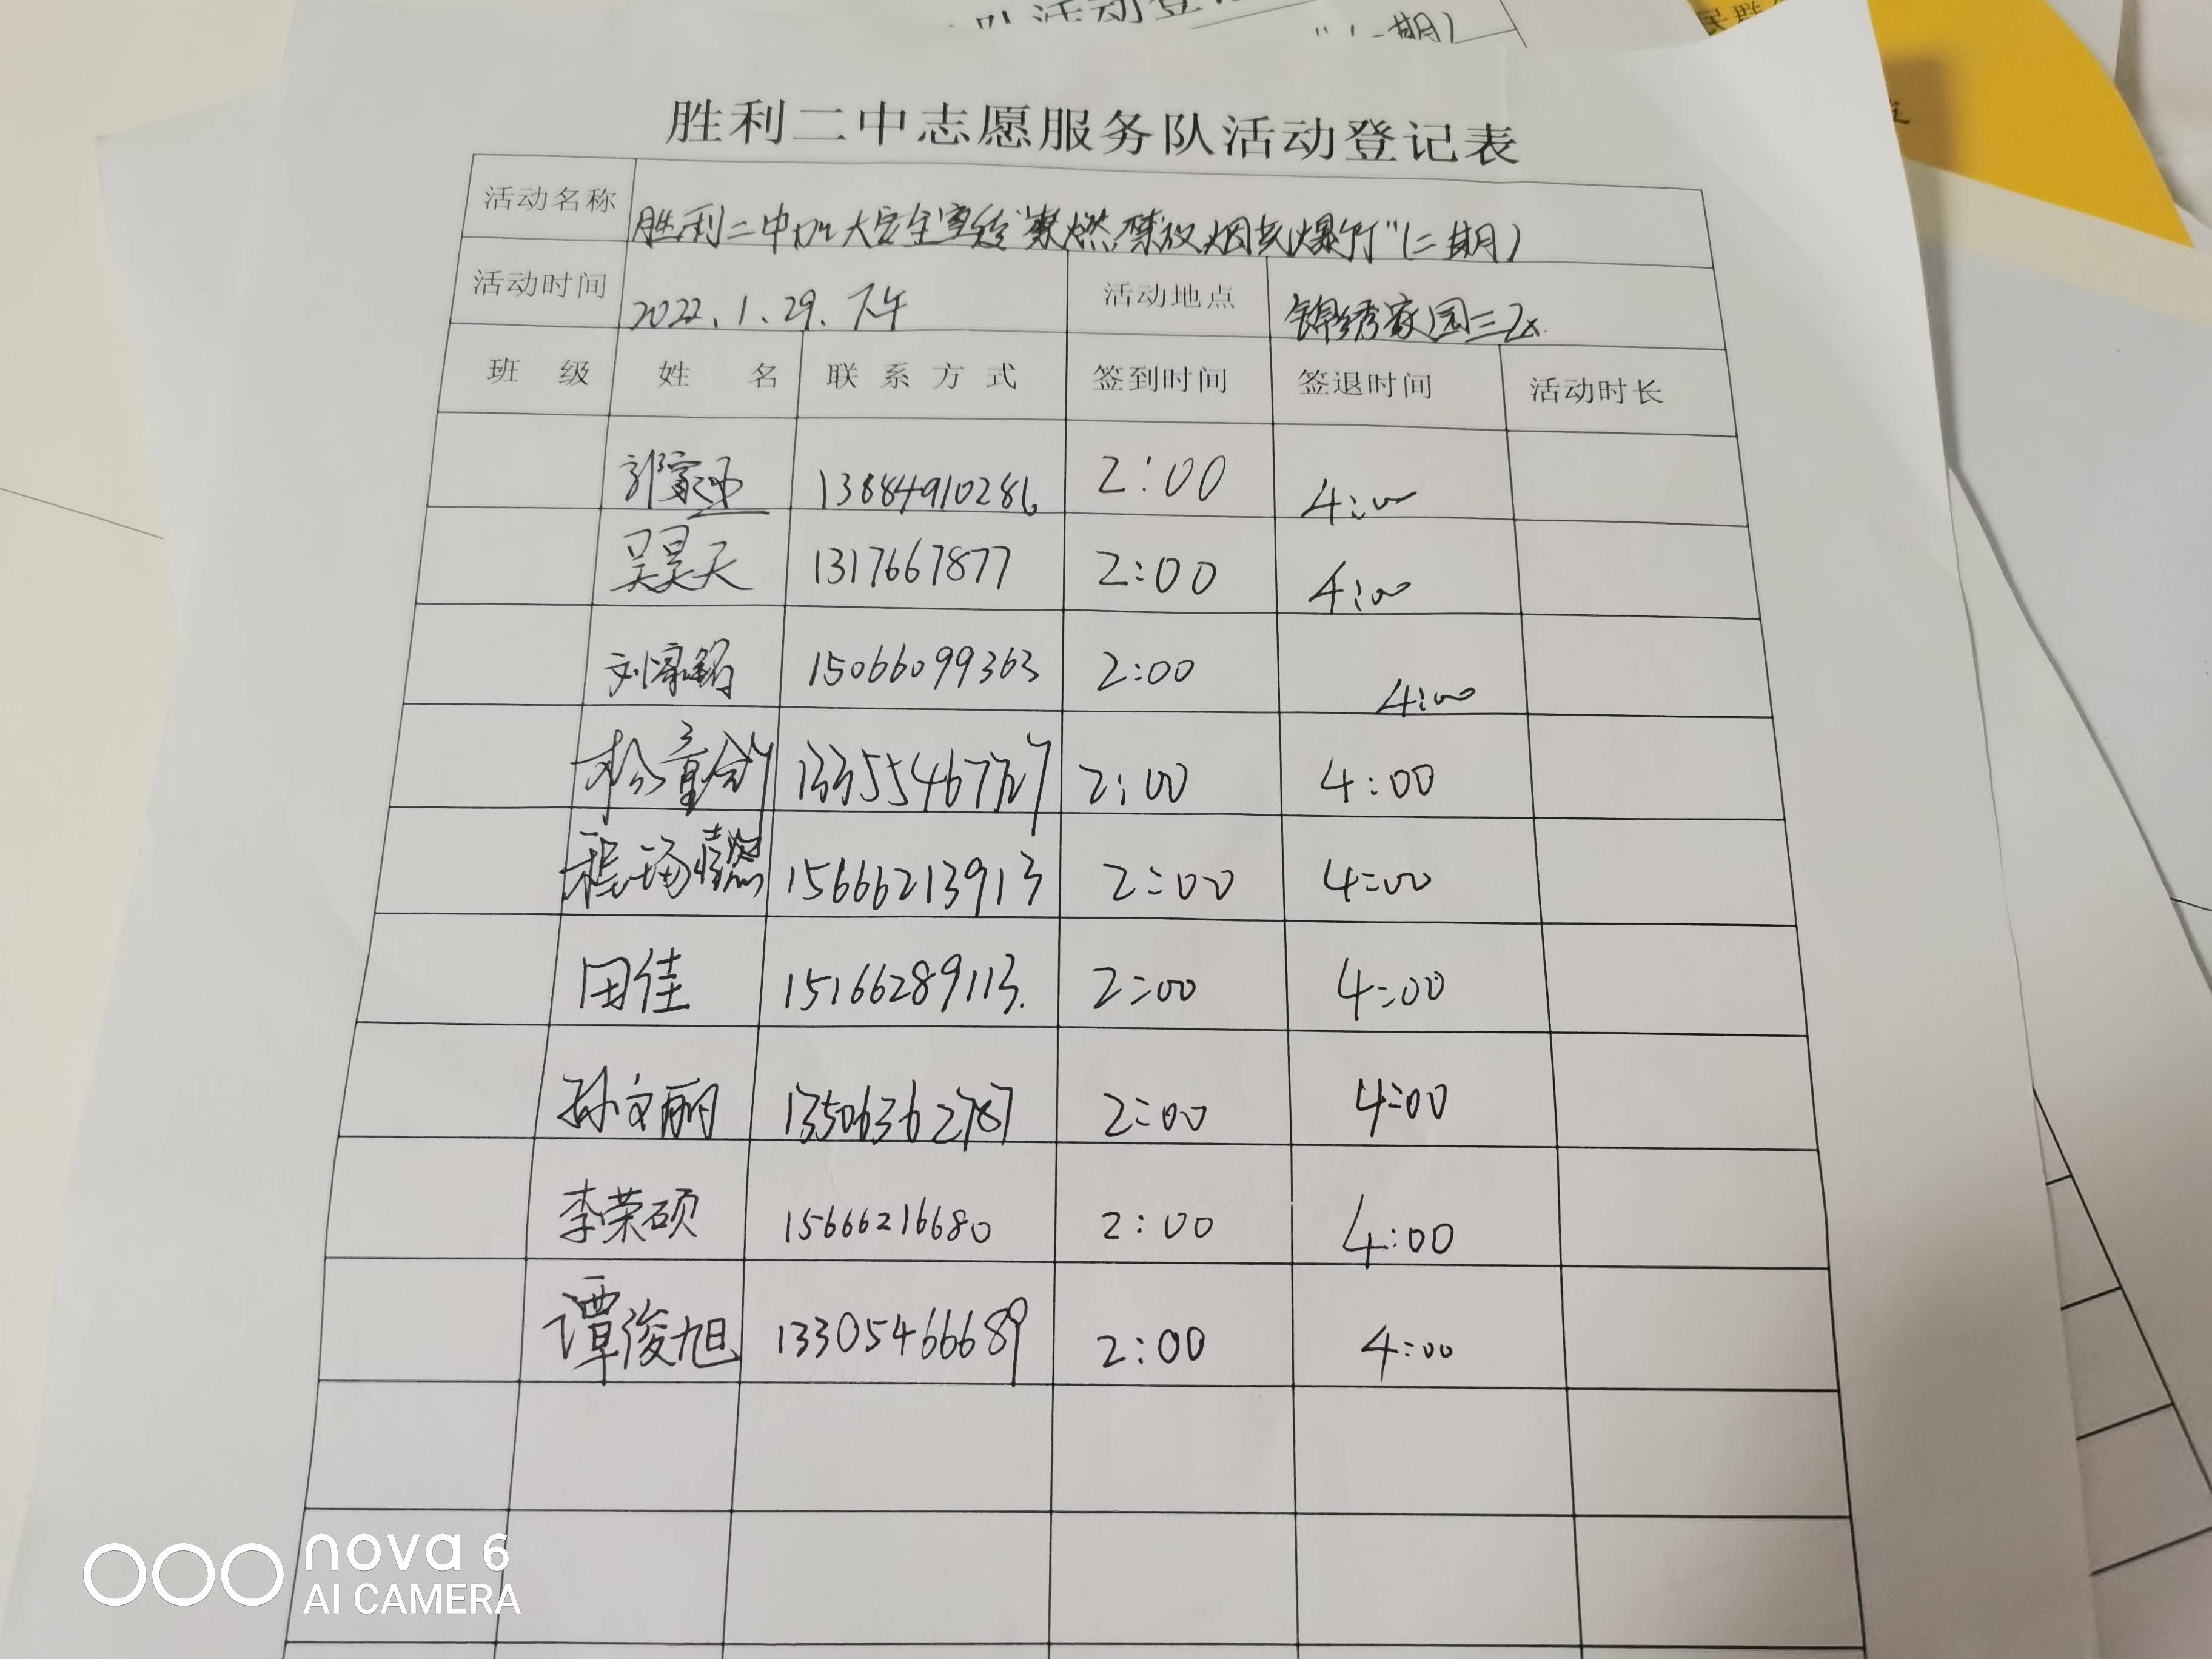 队活动登
(一期)
胜利二中志愿服务队活动登记表
活动名称 胜利二中 大安全宣传"禁燃禁放烟花爆竹"(二期)
活动时间 2022.1.29.下午 活动地点 锦绣家园三区
班 级 姓 名 联 系 方 式 签到时间 签退时间 活动时长
郭家 13884910286 2:00 4:00
吴昊天 1317667877 2:00 4:00
刘家 15066099363 2:00 4:00
童 2:00 4:00
程 15666213913 2:00 4:00
田佳 15166289113. 2:00 4:00
孙文丽 13506362787 2:00 4:00
李荣硕 15666216680 2:00 4:00
谭俊旭 13305466689 2:00 4:00
nova 6
AI CAMERA